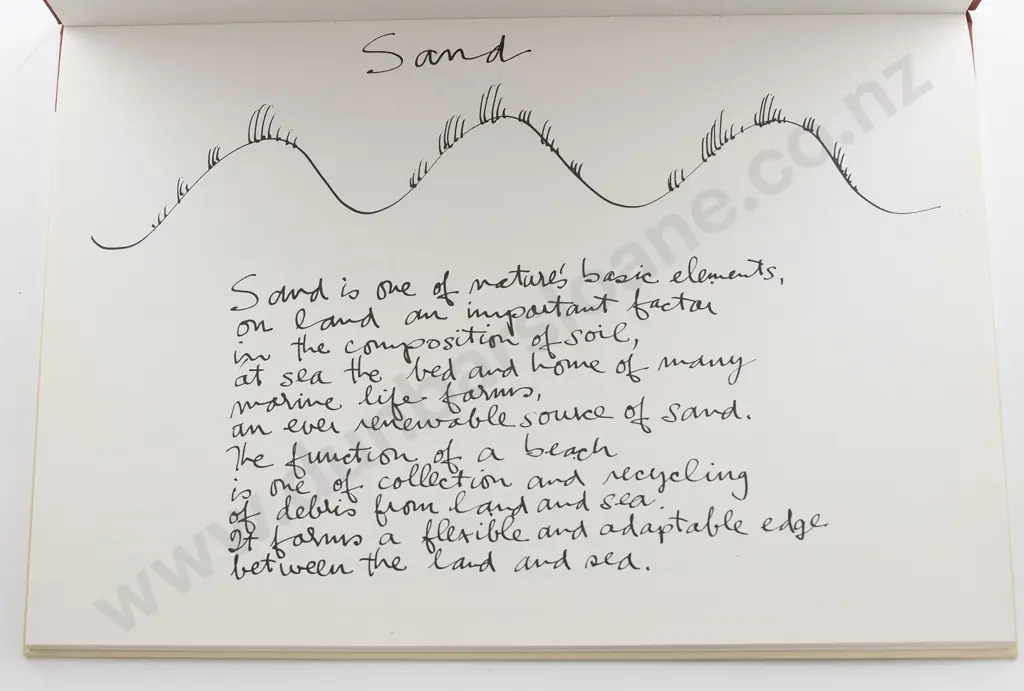 Sand
Sand is one of nature's basic elements,
on land an important factor
in the composition of soil,
at sea the bed and home of many
marine life forms,
an ever renewable source of sand.
The function of a beach
is one of collection and recycling
of debris from land and sea.
It forms a flexible and adaptable edge
between the land and sea.
www.dunbarsloane.co.nz